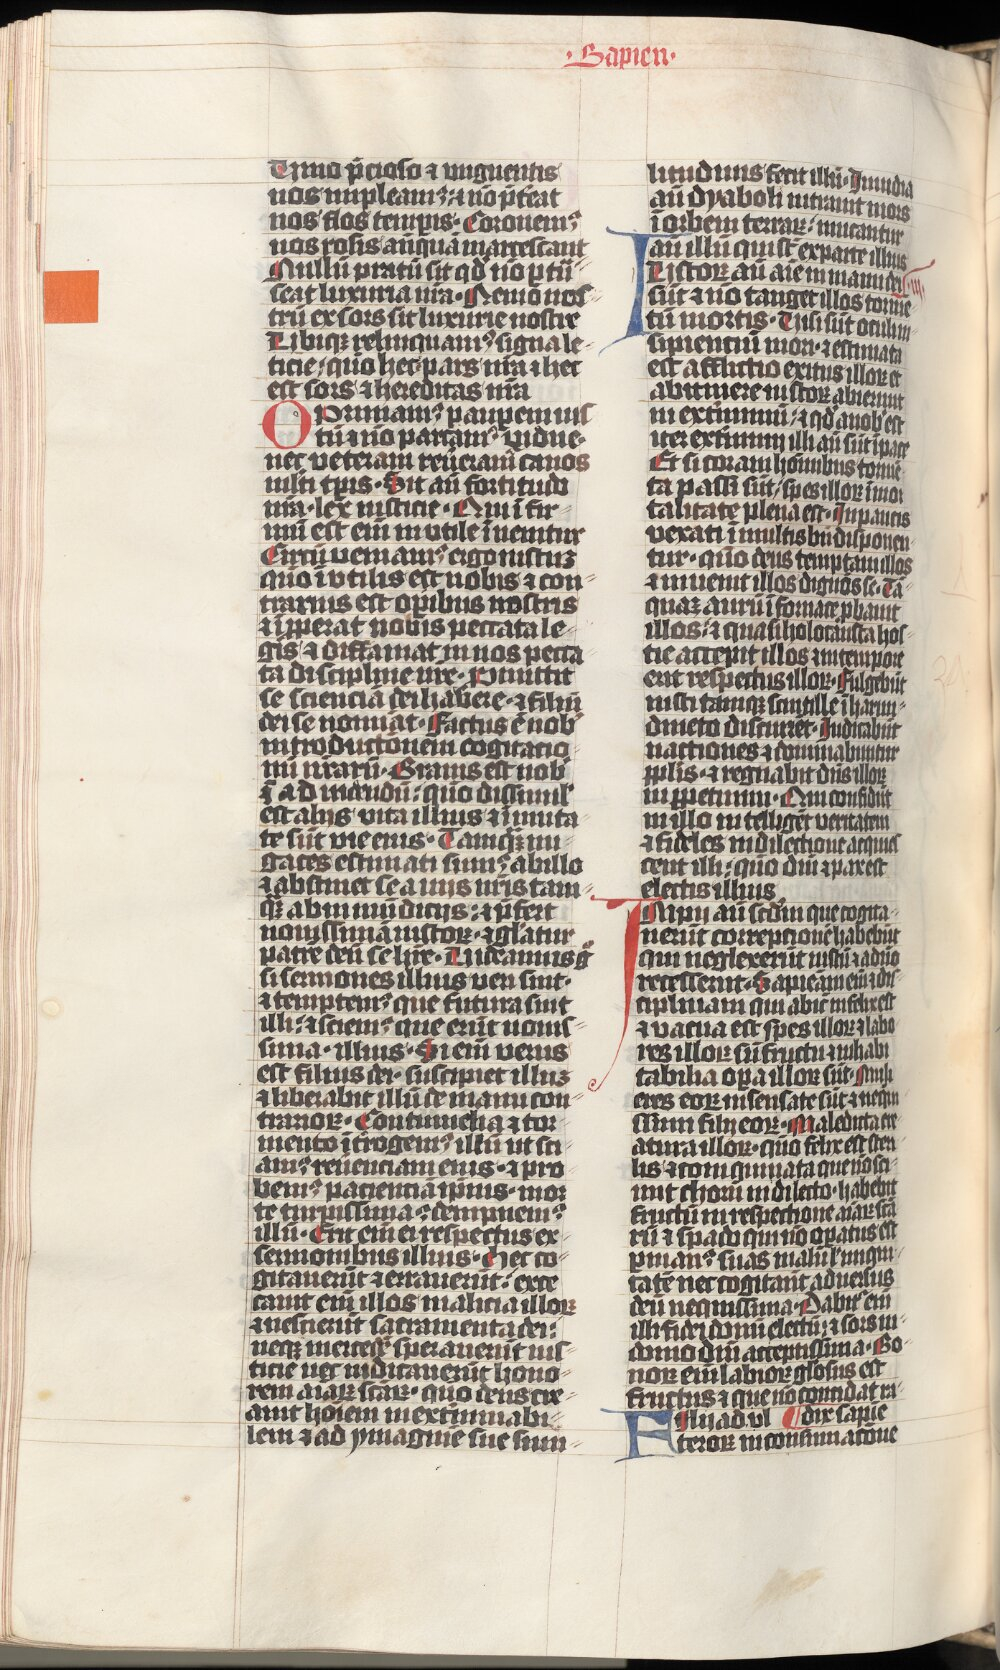 ·Sapien·
Vino p̄cioso ⁊ vnguentis
nos impleamꝰ ⁊ nō p̄t̄eat
nos flos tempis· Coronemꝰ
nos rosis anquā marcescant
Nullū pratū sit qd̄ nō ꝑtrā
seat luxuria nr̄a· Nemo nos
trū exsors sit luxurie nostre
Vbiqꝫ relinquamꝰ signa le
ticie quō hec pars nr̄a ⁊ hec
est sors ⁊ hereditas nr̄a
Opprimamꝰ paupem ius
tū ⁊ nō parcamꝰ vidue
nec veterani reūerām canos
multi tꝑis· Sit aū fortitudo
nr̄a lex iusticie· Qui ī fir
mū est em̄ inutile īuenitur
Circūueniamꝰ ergo iustuꝫ
quō īvtilis est nobis ⁊ con
trarius est oꝑibus nostris
⁊ īpꝓperat nobis peccata le
gis ⁊ diffamat in nos pecca
ta discipline nr̄e· Promittit
se scienciā dei habere ⁊ filiū
dei se nominat· Factus ē nob̄
in traductionem cogitacio
nū nr̄arū· Grauis est nob̄
ē ad videndū quō dissimil̄
est alijs vita illius ⁊ īmuta
te sūt vie eius· Tamqꝫ nu
gaces estimati sumꝰ ab illo
⁊ abstinet se a vijs nr̄is tam
qꝫ ab inmūdicijs ⁊ p̄fert
nouissima iustoꝝ ⁊ gl̄atur
patrē deū se hr̄e· Videamus g̊
si sermones illius veri sint·
⁊ temptemꝰ que futura sint
illi ⁊ sciemꝰ que erūt nouis
sima illius· Si em̄ verus
est filius dei suscipiet illuꝫ
⁊ liberabit illū de manu con
trarioꝝ· Contumelia ⁊ tor
mento īt̄rogemꝰ illū ut sci
amꝰ reūenciam eius ⁊ pro
bemꝰ pacienciā ip̄ius· mor
te turpissima 9dempnemꝰ
illū· Erit em̄ ei respectus ex
sermonibus illius· Hec co
gitauerūt ⁊ errauerūt exce
cauit em̄ illos malicia illoꝝ
⁊ nescierūt sacramenta dei
neqꝫ mercedē sperauerūt ius
ticie nec iudicauerūt hono
rem aīaꝝ sc̄aꝝ· quō deus cre
auit hoīem inexterminabi
lem ⁊ ad ymaginē sue simi
litudinis fecit illū· Inuidia
aū dyaboli intrauit mors
ī orbem terraꝝ imitantur
aū illū qui st̄ ex parte illius
Iustoꝝ aū aīe in manu dei
·iii·
sūt ⁊ nō tanget illos torme
tū mortis· Visi sūt oculis
insipienciū mori ⁊ estimata
est afflictio exitus illoꝝ et
ab itinere iustoꝝ abierunt
in exterminiū ⁊ qd̄ a nob̄ est
iter exterminij illi aū sūt ī pace
Et si coram hōinibus torme
ta passi sūt spes illoꝝ īmor
talitate plena est· In paucis
vexati ī multis bn̄ disponen
tur· quō deus temptauit illos
⁊ inuenit illos dignos se· Tā
quaꝫ aurū ī fornace ꝓbauit
illos ⁊ quasi holocausta hos
tie accepit illos ⁊ in tempore
erit respectus illoꝝ· Fulgebūt
iusti tamqꝫ scintille ī harun
dineto discurrēt· Iudicabūt
nactiones ⁊ dominabuntur
pp̄lis ⁊ regnabit dn̄s illoꝝ
in ꝑpetuum· Qui confidūt
in illo intelligēt veritatem
⁊ fideles in dilectione acquies
cent illi quō donū ⁊ pax est
electis illius
Impii aū scd̄m que cogita
uerūt correpcionē habebūt
qui neglexerūt iustū ⁊ a dn̄o
recesserūt· Sapienciā em̄ ⁊ dis
ciplinam qui abicit infelix est
⁊ vacua est spes illoꝝ ⁊ labo
res illoꝝ sn̄ fructu ⁊ inhabi
tabilia oꝑa illoꝝ sūt· Muli
eres eoꝝ insensate sūt ⁊ nequi
ssimi filij eoꝝ· Maledicta cre
atura illoꝝ quō felix est steri
lis ⁊ incoinquinata que nō sci
uit thorū in delicto habebit
fructū in respectione aīaꝝ sc̄a
rū ⁊ spado qui nō oꝑatus est
ꝑ manꝰ suas iniquita
tatē nec cogitauit aduersus
deū nequissima· Dabitᷣ em̄
illi fidei donū electū ⁊ sors in
domo dei acceptissima· Bo
noꝝ em̄ laboꝝ glōsus est
fructus ⁊ que nō concidat ra
Filij adul dix sapie
teroꝝ in consumacōne